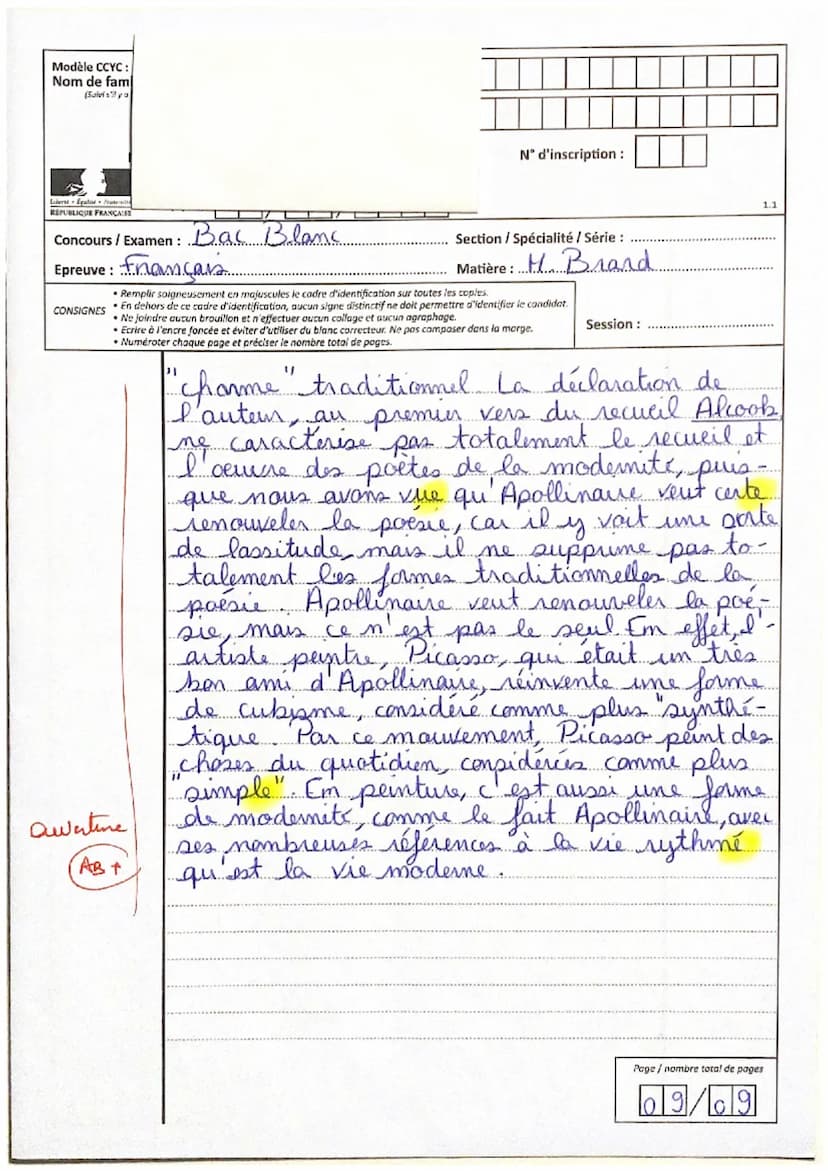 Modèle CCYC :
Nom de fam
(Suivi s'il y a
N° d'inscription :
Liberté • Égalité • Fraternité
RÉPUBLIQUE FRANÇAISE
1.1
Concours / Examen : Bac Blanc Section / Spécialité / Série :
Epreuve : Français Matière : M. Brand
CONSIGNES
• Remplir soigneusement en majuscules le cadre d'identification sur toutes les copies.
• En dehors de ce cadre d'identification, aucun signe distinctif ne doit permettre d'identifier le candidat.
• Ne joindre aucun brouillon et n'effectuer aucun collage et aucun agraphage.
• Ecrire à l'encre foncée et éviter d'utiliser du blanc correcteur. Ne pas composer dans la marge.
• Numéroter chaque page et préciser le nombre total de pages.
Session :
"charme" traditionnel. La déclaration de
l'auteur, au premier vers du recueil Alcools,
ne caractérise pas totalement le recueil et
l'oeuvre des poètes de la modernité, puis-
que nous avons vue qu'Apollinaire veut certe
renouveler la poésie, car il y voit une sorte
de lassitude, mais il ne supprime pas to-
talement les formes traditionnelles de la
poésie. Apollinaire veut renouveler la poé-
sie, mais ce n'est pas le seul. En effet, l'-
artiste peintre, Picasso, qui était un très
bon ami d'Apollinaire, réinvente une forme
de cubisme, considéré comme plus "synthé-
tique. Par ce mouvement, Picasso peint des
choses du quotidien, considérées comme plus
"simple". En peinture, c'est aussi une forme
de modernité, comme le fait Apollinaire, avec
ses nombreuses références à la vie rythmé
qu'est la vie moderne.
Ouverture
AB+
Page / nombre total de pages
09/09